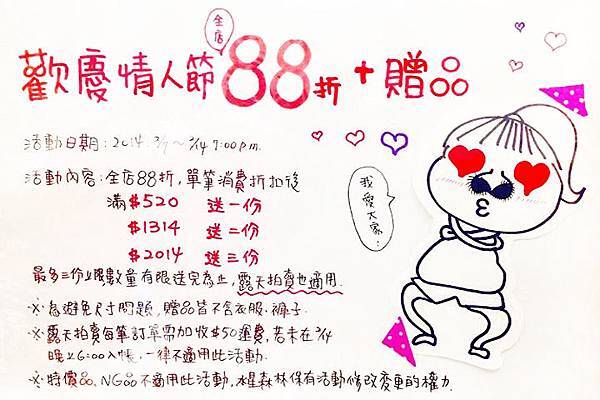 全店
歡慶情人節88折+贈品
活動日期:2014.2/7～2/14 7:00p.m.
活動內容:全店88折,單筆消費折扣後
滿$520 送一份
$1314 送二份
$2014 送三份
最多三份上限數量有限送完為止,露天拍賣也適用.
我愛大家..
※為避免尺寸問題,贈品皆不含衣服.褲子.
※露天拍賣每筆訂單需加收$50運費,若未在2/14
晚上6:00入帳,一律不適用此活動.
※特價品、NG品不適用此活動,本星森林保有活動修改變更的權力.